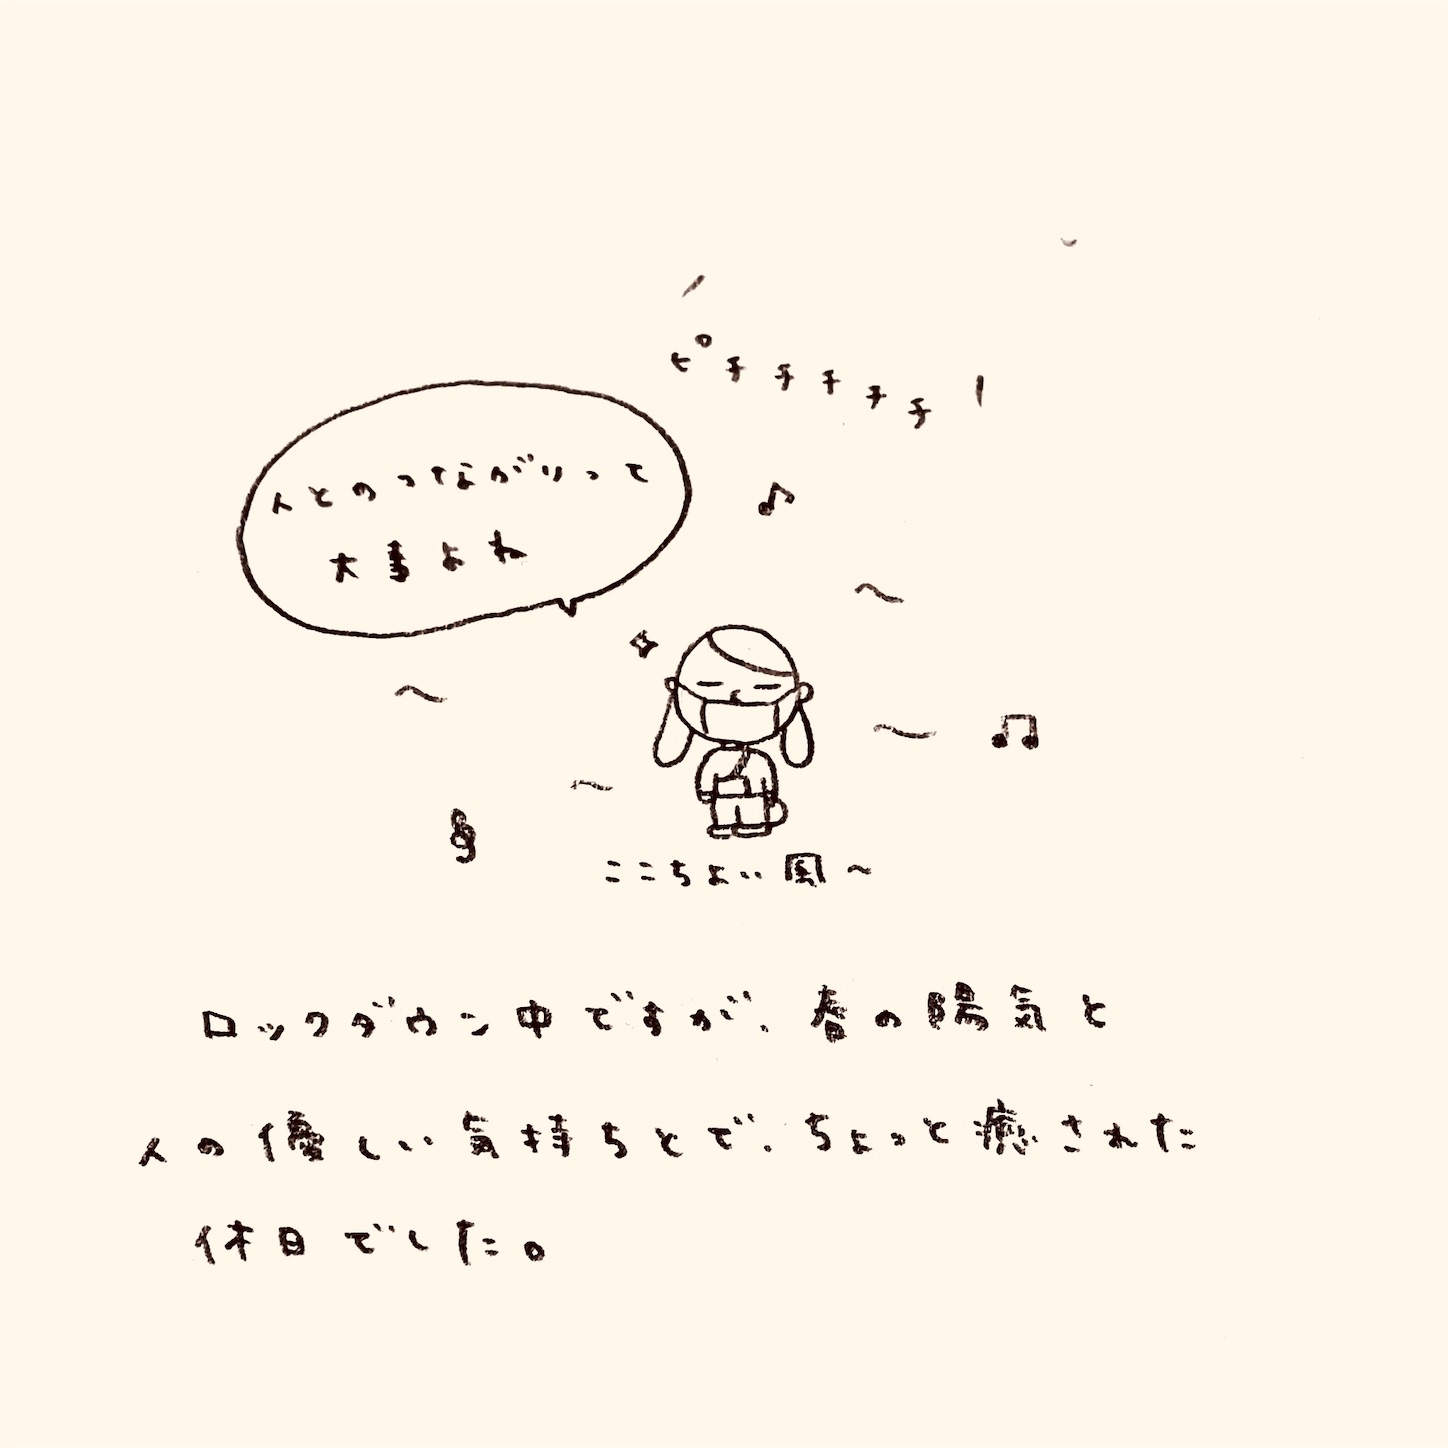 ピチチチチチ
人とのつながりって
大事よね
ここちよい風〜
ロックダウン中ですが、春の陽気と
人の優しい気持ちとで、ちょっと癒された
休日でした。